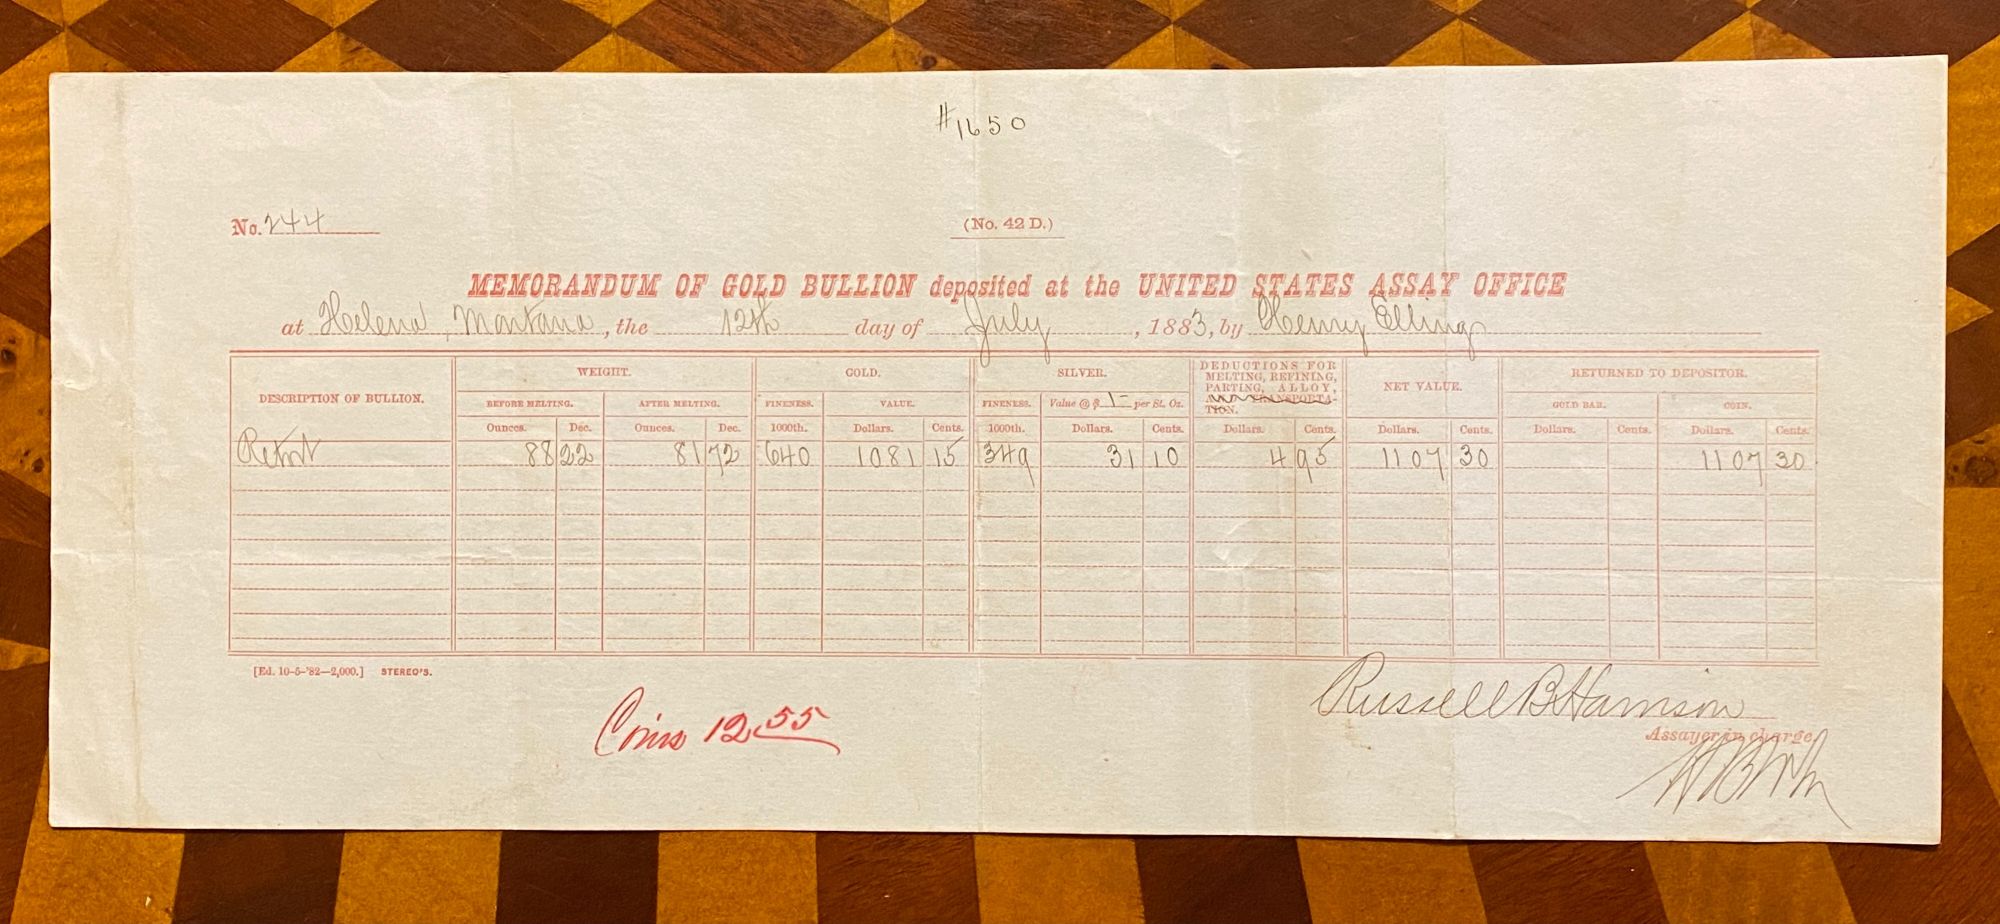 #1650
No. 244
(No. 42 D.)
MEMORANDUM OF GOLD BULLION deposited at the UNITED STATES ASSAY OFFICE
at Helena, Montana, the 12th day of July, 1883, by Henry Elling
DESCRIPTION OF BULLION. WEIGHT. GOLD. SILVER. DEDUCTIONS FOR MELTING, REFINING, PARTING, ALLOY, AND TRANSPORTATION. NET VALUE. RETURNED TO DEPOSITOR.
BEFORE MELTING. AFTER MELTING. FINENESS. VALUE. FINENESS. Value @ $ 1- per St. Oz. GOLD BAR. COIN.
Ounces. Dec. Ounces. Dec. 1000th. Dollars. Cents. 1000th. Dollars. Cents. Dollars. Cents. Dollars. Cents. Dollars. Cents. Dollars. Cents.
Retort 88 22 81 72 640 1081 15 349 31 10 4 95 1107 30 1107 30
[Ed. 10-5-'82—2,000.] STEREO'S.
Coins 12.55
Russell B Harrison
Assayer in charge